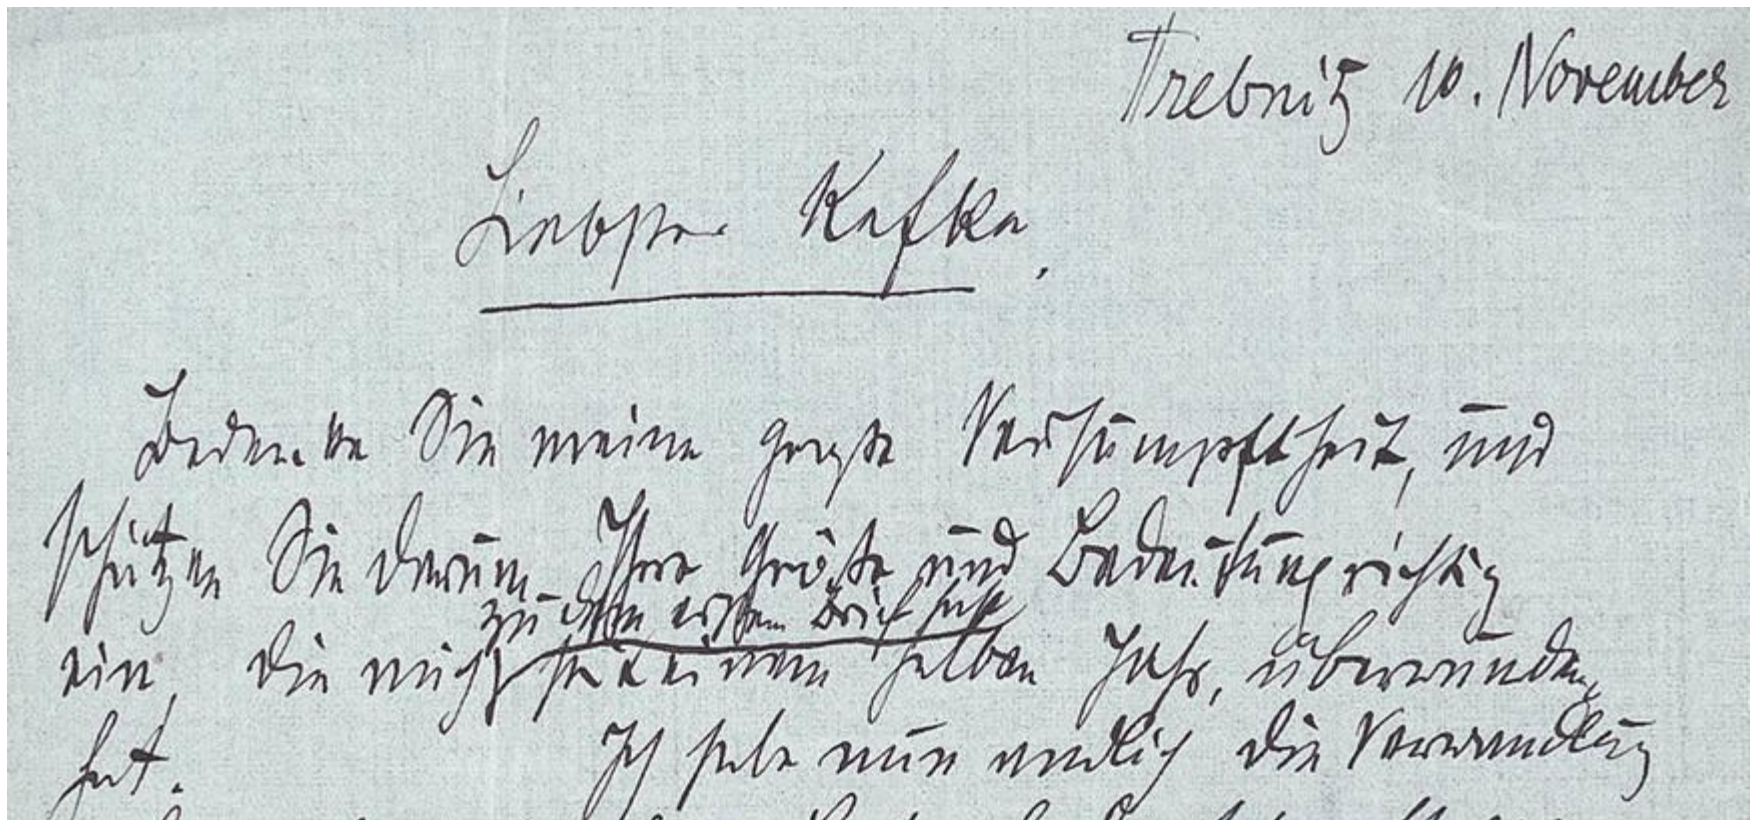 Trebnitz 10. November
Liebster Kafka,
Bedenken Sie meine große Versumpftheit, und
schätzen Sie darum Ihre Größe und Bedeutung richtig
zu dem ersten Brief seit
ein, die mich seit einem halben Jahr, überwunden
hat.
Ich habe nun endlich die Verwandlung